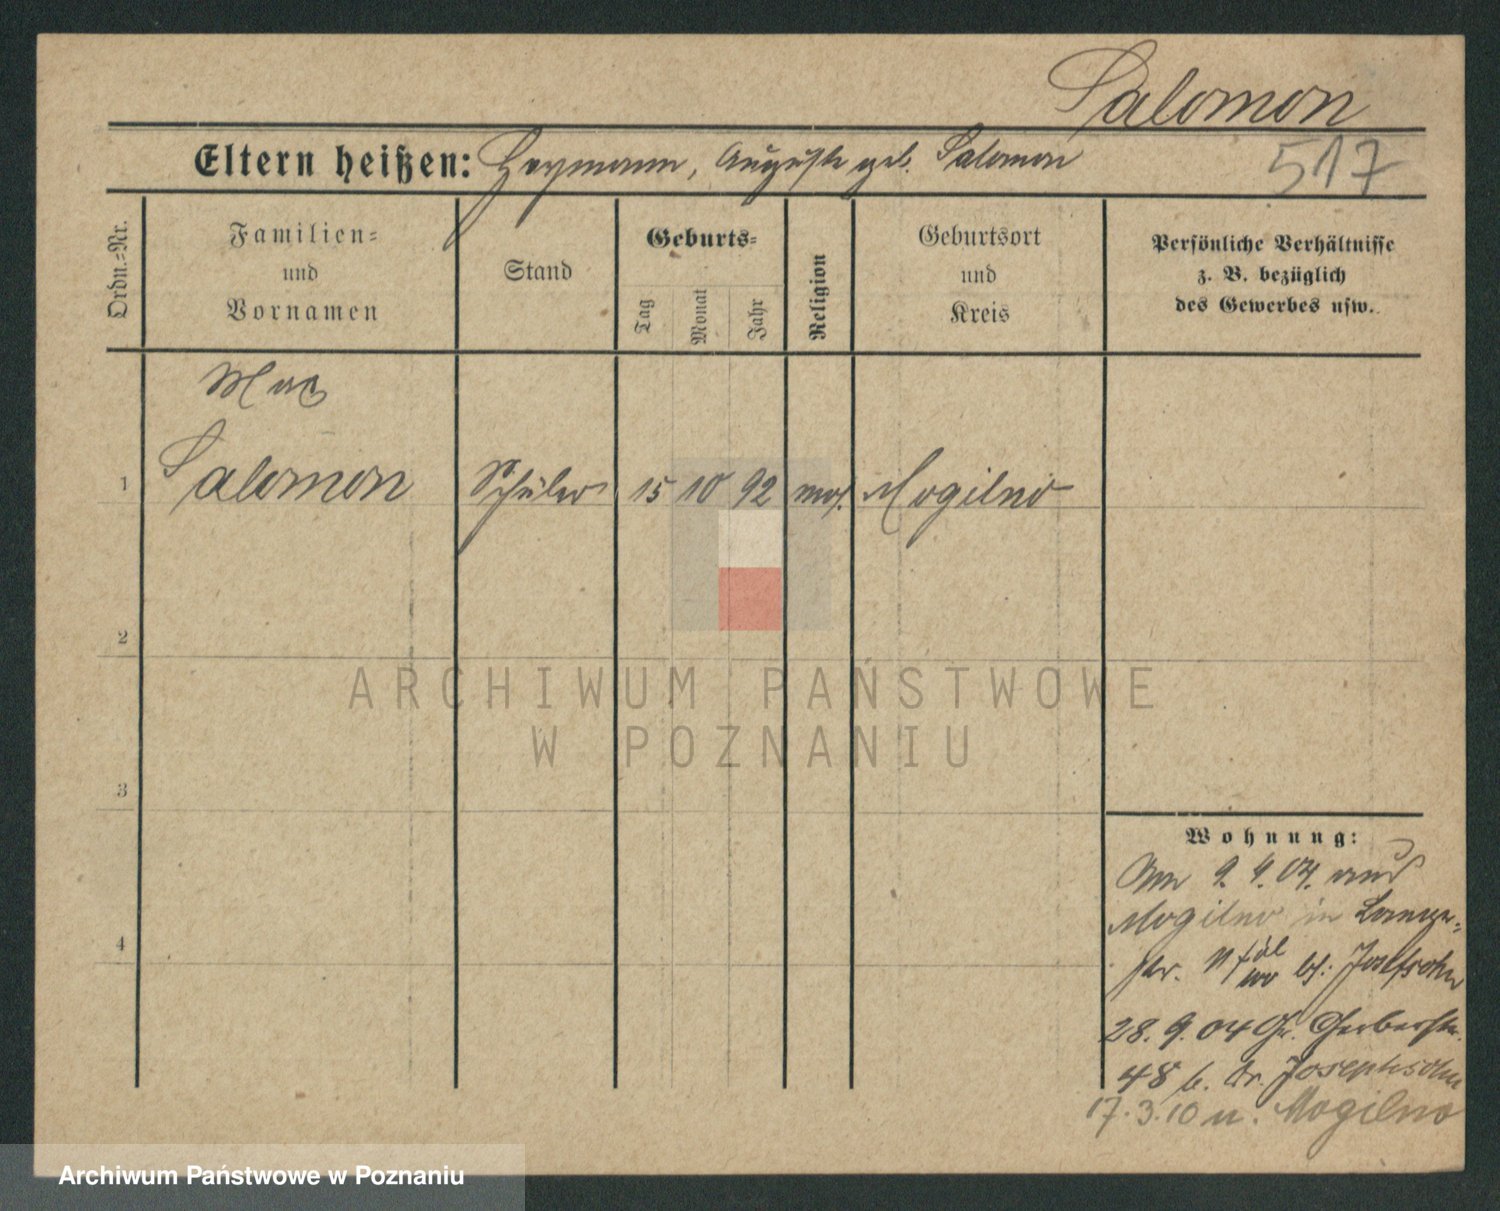 Salomon
Eltern heißen: Heymann, Auguste geb. Salomon
517
Ordn.=Nr.
Familien=
und
Vornamen
Stand
Geburts=
Tag
Monat
Jahr
Religion
Geburtsort
und
Kreis
Persönliche Verhältnisse
z. B. bezüglich
des Gewerbes usw.
Max
1 Salomon Schüler 15 10 92 mos. Mogilno
2
3
4
ARCHIWUM PAŃSTWOWE
W POZNANIU
Wohnung:
Am 9. 4. 04. aus
Mogilno in Lange-
str. 11 bei Josefsohn
28. 9. 04 Gr. Gerberstr.
48 b. Fr. Josephsohn
17. 3. 10 n. Mogilno
Archiwum Państwowe w Poznaniu